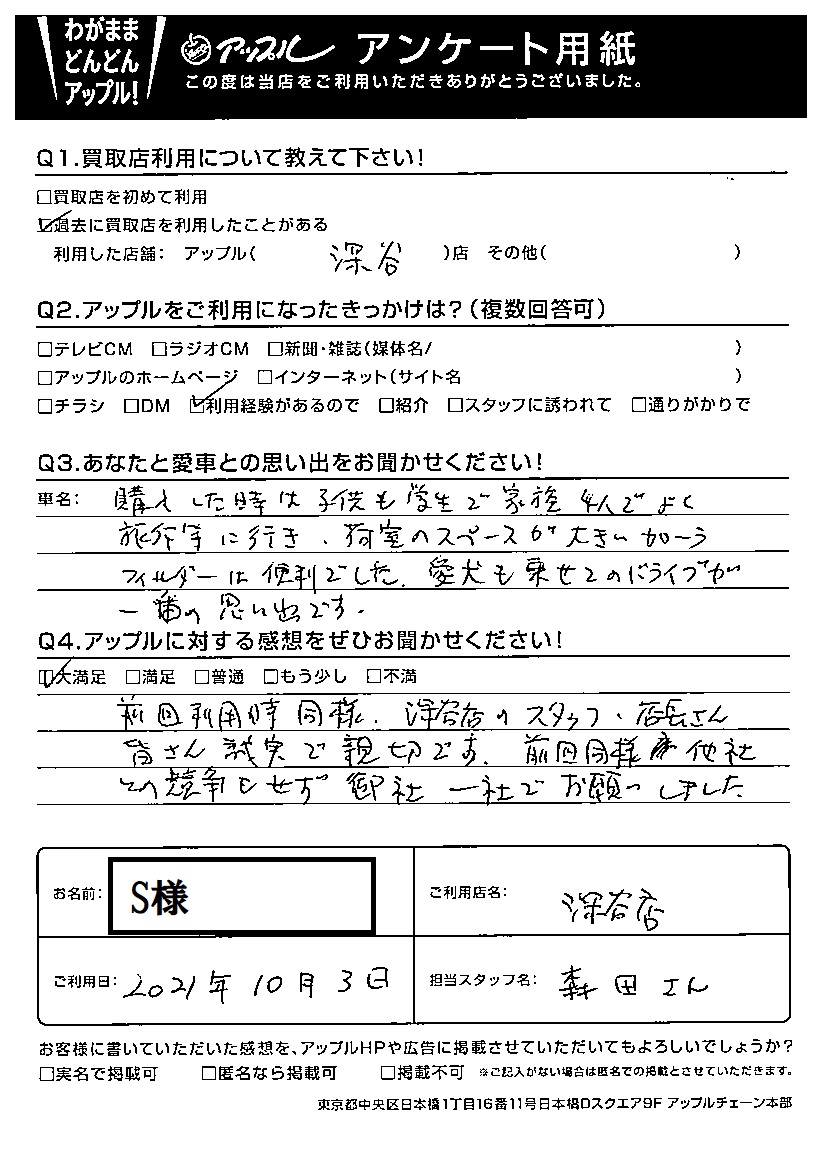 わがまま
どんどん
アップル!
アップル アンケート用紙
この度は当店をご利用いただきありがとうございました。
Q1.買取店利用について教えて下さい!
□買取店を初めて利用
☑過去に買取店を利用したことがある
利用した店舗: アップル( 深谷 )店 その他( )
Q2.アップルをご利用になったきっかけは?(複数回答可)
□テレビCM □ラジオCM □新聞・雑誌(媒体名/ )
□アップルのホームページ □インターネット(サイト名 )
□チラシ □DM ☑利用経験があるので □紹介 □スタッフに誘われて □通りがかりで
Q3.あなたと愛車との思い出をお聞かせください!
車名: 購入した時は子供も学生で家族4人でよく
旅行等に行き、荷室のスペースが大きいカローラ
フィルダーは便利でした。愛犬も乗せてのドライブが
一番の思い出です。
Q4.アップルに対する感想をぜひお聞かせください!
☑大満足 □満足 □普通 □もう少し □不満
前回利用時同様、深谷店のスタッフ、店長さん
皆さん誠実で親切です。前回同様 他社
との競争もせず御社一社でお願いしました
お名前: S様
ご利用店名: 深谷店
ご利用日: 2021年10月3日
担当スタッフ名: 森田さん
お客様に書いていただいた感想を、アップルHPや広告に掲載させていただいてもよろしいでしょうか?
□実名で掲載可 □匿名なら掲載可 □掲載不可 ※ご記入がない場合は匿名での掲載とさせていただきます。
東京都中央区日本橋1丁目16番11号日本橋Dスクエア9F アップルチェーン本部